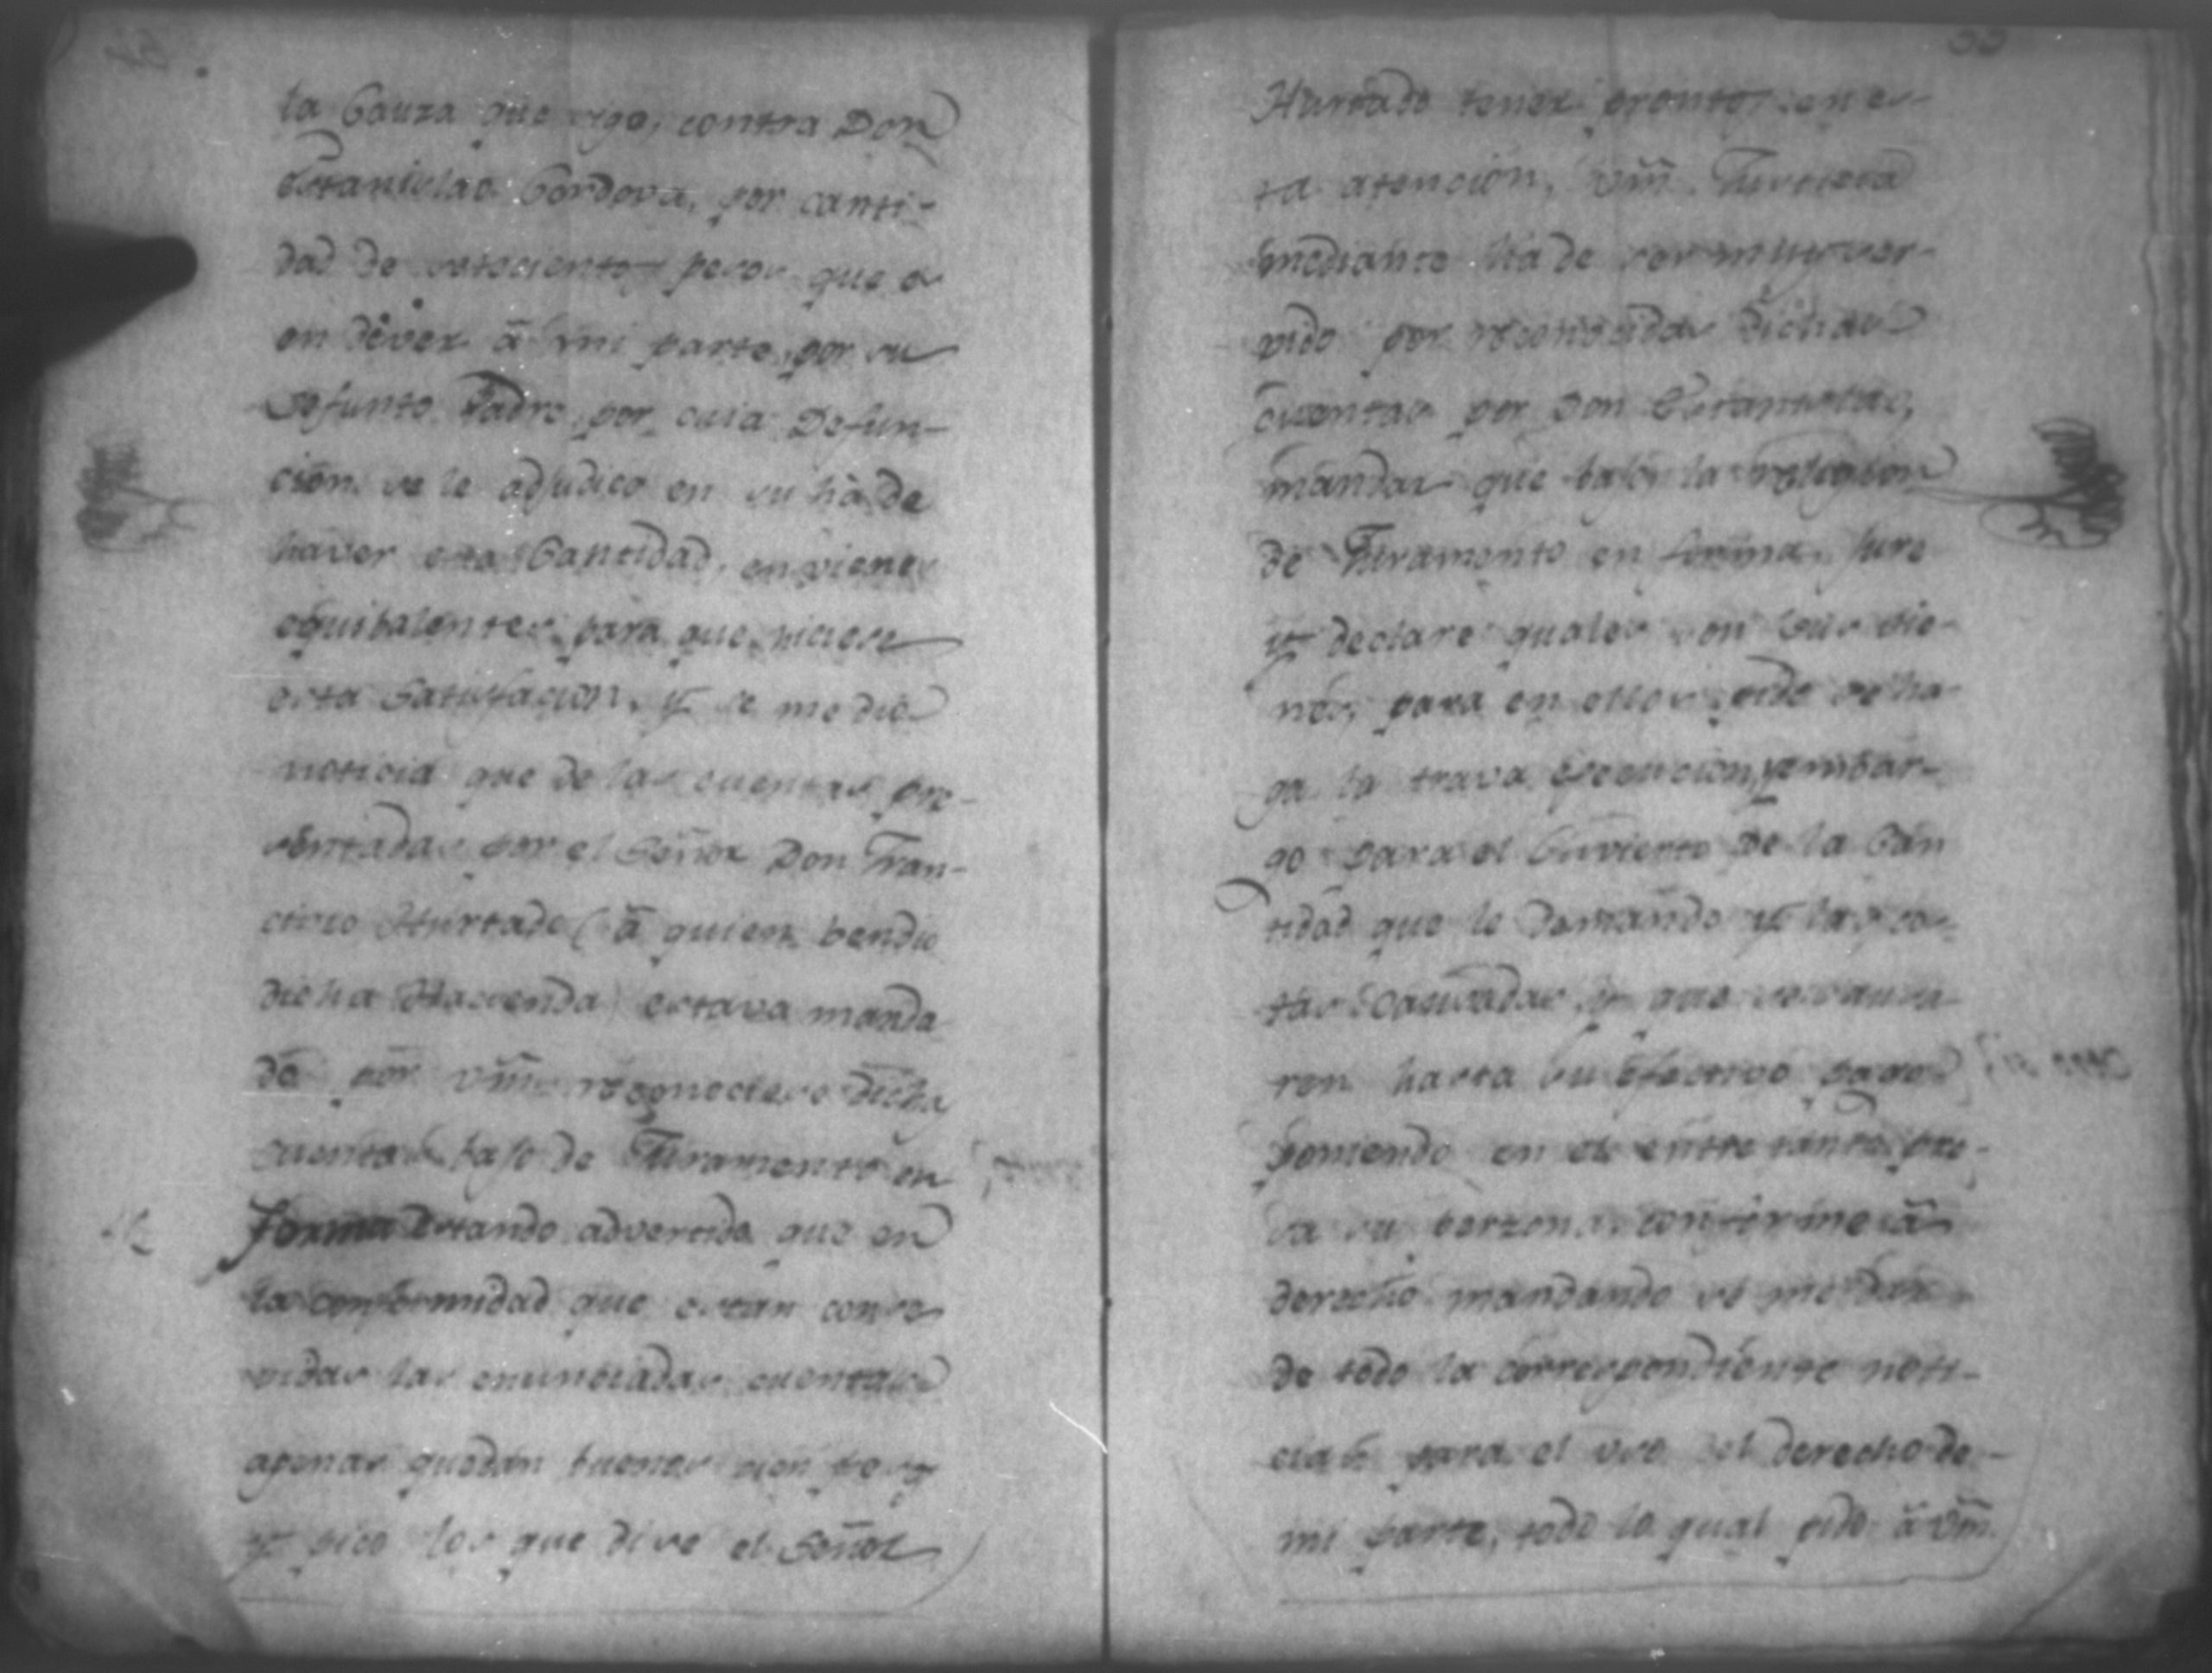 la Cauza que sigo, contra Don
Estanislao Cordova, por canti-
dad de setecientos pesos que es
en dever â mi parte, por su
Defunto Padre, por cuia Defun-
ción se le adjudico en su hà de
haver esta Cantidad, en vienes
equibalentes para que hiciese
esta Satisfacion, y se me dio
noticia que de las cuentas pre-
sentadas por el Señor Don Fran-
cisco Hurtado (â quien bendio
dicha Hacienda) estava manda
do por Vm. reconociese dichas
cuentas bajo de Juramento en
forma Estando advertido que en
la conformidad que estan conve
nidas las enunciadas cuentas
apenas quedan buenos cien pesos
y pico los que dise el Señor
Hurtado tener prontos en es-
ta atencion, Vm. Justicia
mediante ha de ser muy ser-
vido por reconocidas dichas
cuentas por Don Estanislao,
mandar que bajo la religion
de Juramento en forma, jure
y declare quales son sus vie-
nes, para en ellos pido se ha-
ga la trava Ejecucion, y embar-
go para el Cuvierto de la Can
tidad que le Demando y las cos-
tas Causadas y que se causa-
ren hasta su Efectivo pago
poniendo en el entre tanto pre-
sa su perzona conforme â
derecho mandando se me den
de todo la correspondiente noti-
cias para el uso del derecho de
mi parte, todo lo qual pido â Vm.